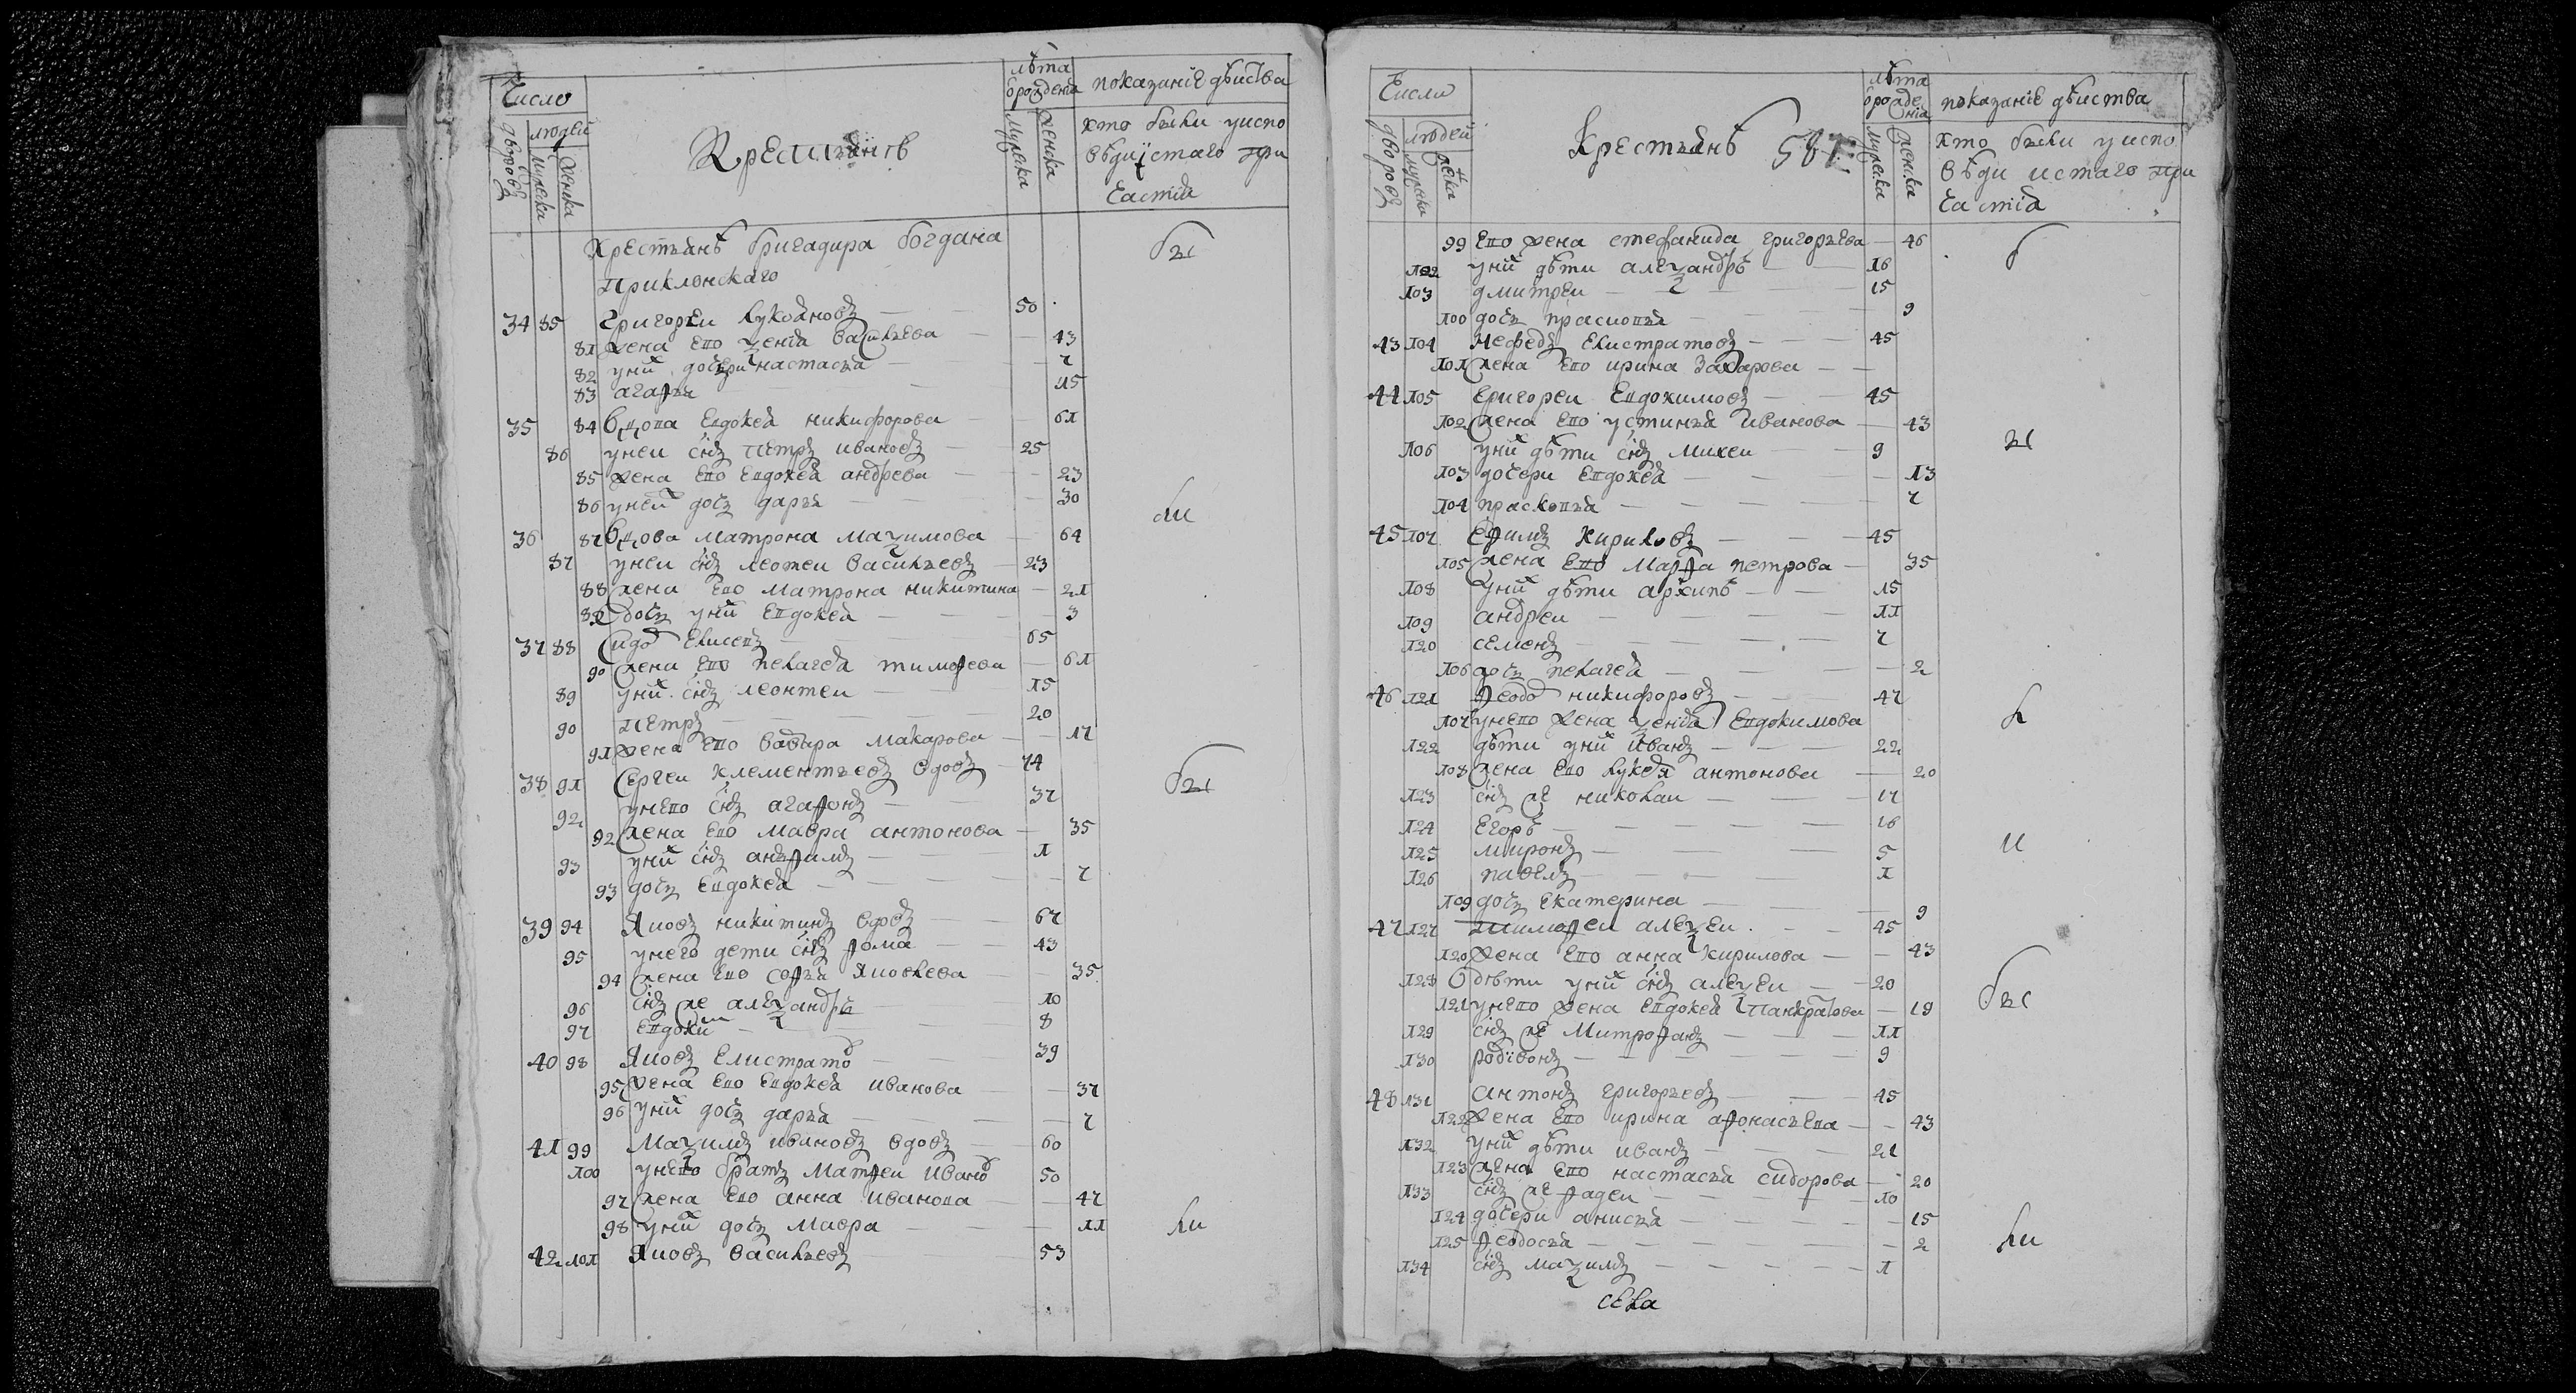 Число
людей
дворовъ
мужска
женска
Крестьянъ
лѣта
ѿ рождения
мужска
женска
показание дѣиства
хто были у испо
вѣди и с̃таго при
частия
Крестьянъ бригадира богдана
Приклонскаго
34 85 Григореи Лукояновъ — 50
81 жена ево ѯения василева — 43
82 у них дочери настасья — 7
83 агафья 15
35 84 вдова Евдокея никифорова — 61
86 у неи сн̃ъ Петръ ивановъ — 25
85 жена ево Евдокея андреева — 23
86 у неих дочь дарья — 30
36 87 вдова матрона маѯимова — 64
87 у неи сн̃ъ леонтеи васильевъ — 23
88 жена ево матрона никитина — 21
89 дочь у них Евдокея — 3
37 88 Сидоръ Елисеевъ — 65
90 жена ево пелагея тимофеева — 61
89 у них сн̃ъ леонтеи — 15
90 Петръ — 20
91 жена ево варвара макарова — 17
38 91 Сергеи клементьевъ вдовъ — 74
92 у нево сн̃ъ агафонъ — 37
92 жена ево мавра антонова — 35
93 у них сн̃ъ анфимъ — 1
93 дочь Евдокея — 7
39 94 Яковъ никитинъ вдовъ — 67
95 у него дети сн̃ъ фома — 43
94 жена ево софья яковлева — 35
96 сн̃ъ же алеѯандръ 10
97 Евдоким — 8
40 98 Яковъ Елистратов — 39
95 жена ево Евдокея иванова — 37
96 у них дочь дарья — 7
41 99 Маѯимъ ивановъ вдовъ — 60
100 у нево братъ Матфеи Иванов 50
97 жена ево анна иванова — 47
98 у них дочь мавра — 11
42 101 Яковъ васильевъ 53
бы
ли
бы
ли
Число
людей
дворовъ
мужска
женска
Крестьянъ 587
лѣта
ѿ рожде
ния
мужска
женска
показание дѣиства
хто были у испо
вѣди и с̃таго при
частия
99 Ево жена стефанида григорьева — 46
102 у них дѣти алеѯандръ — 16
103 дмитреи — 15
100 дочь прасковья — 9
43 104 Нефедъ Елистратовъ — 45
101 жена ево ирина Захарова — —
44 105 Григореи Евдокимовъ — 45
102 жена ево устинья иванова — 43
106 у них дѣти сн̃ъ михеи — 9
103 дочери Евдокея — 13
104 прасковья — 7
45 107 Ефимъ кириловъ — 45
105 жена ево марфа петрова — 35
108 у них дѣти архипъ — 15
109 андреи — 11
120 семенъ — 7
106 дочь пелагея — 2
46 121 Феодор никифоровъ — 47
107 у нево жена ѯения Евдокимова
122 дѣти у них иванъ — 22
108 жена ево лукея антонова — 20
123 сн̃ъ же николаи — 17
124 Егоръ — 16
125 миронъ — 5
126 павелъ — 1
109 дочь Екатерина — 9
47 127 Тимофеи алеѯеи — 45
120 жена ево анна кирилова — 43
128 дѣти у них сн̃ъ алеѯеи — 20
121 у нево жена Евдокея Панкратова — 19
129 сн̃ъ же Митрофанъ — 11
130 родивонъ — 9
48 131 антонъ григорьевъ — 45
122 жена ево ирина афонасьева — 43
132 у них дѣти иванъ — 21
123 жена ево настасья сидорова — 20
133 сн̃ъ же фадеи — 10
124 дочери анисья — 15
125 феодосья — 2
134 сн̃ъ маѯимъ — 1
села
б
ы
л
и
бы
ли